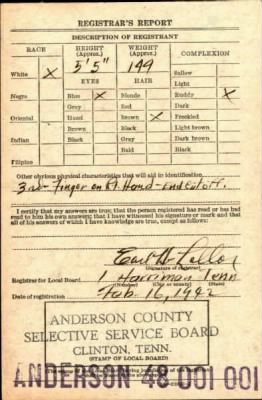 REGISTRAR'S REPORT
DESCRIPTION OF REGISTRANT
RACE HEIGHT (Approx.) WEIGHT (Approx.) COMPLEXION
5' 5" 149
White X Sallow
EYES HAIR Light
Negro Blue X Blonde Ruddy X
Gray Red Dark
Oriental Hazel Brown X Freckled
Brown Black Light brown
Indian Black Gray Dark brown
Bald Black
Filipino
Other obvious physical characteristics that will aid in identification
3rd Finger on Hand - end cut off.
I certify that my answers are true; that the person registered has read or has had
read to him his own answers; that I have witnessed his signature or mark and that
all of his answers of which I have knowledge are true, except as follows:
Earl
(Signature of registrar)
Registrar for Local Board 1 Harriman Tenn
(Number) (City) (State)
Date of registration Feb. 16, 1942
ANDERSON COUNTY
SELECTIVE SERVICE BOARD
CLINTON, TENN.
(STAMP OF LOCAL BOARD)
ANDERSON 48 001 001